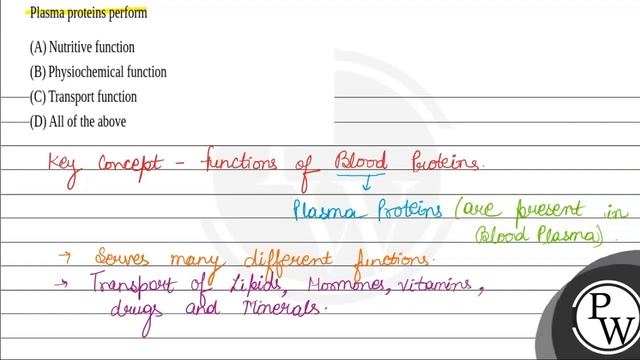 Plasma proteins perform
(A) Nutritive function
(B) Physiochemical function
(C) Transport function
(D) All of the above
Key Concept - functions of Blood Proteins.
Plasma Proteins (are present in
Blood Plasma).
→ Serves many different functions.
→ Transport of Lipids, Hormones, vitamins,
drugs and Minerals.
P
W